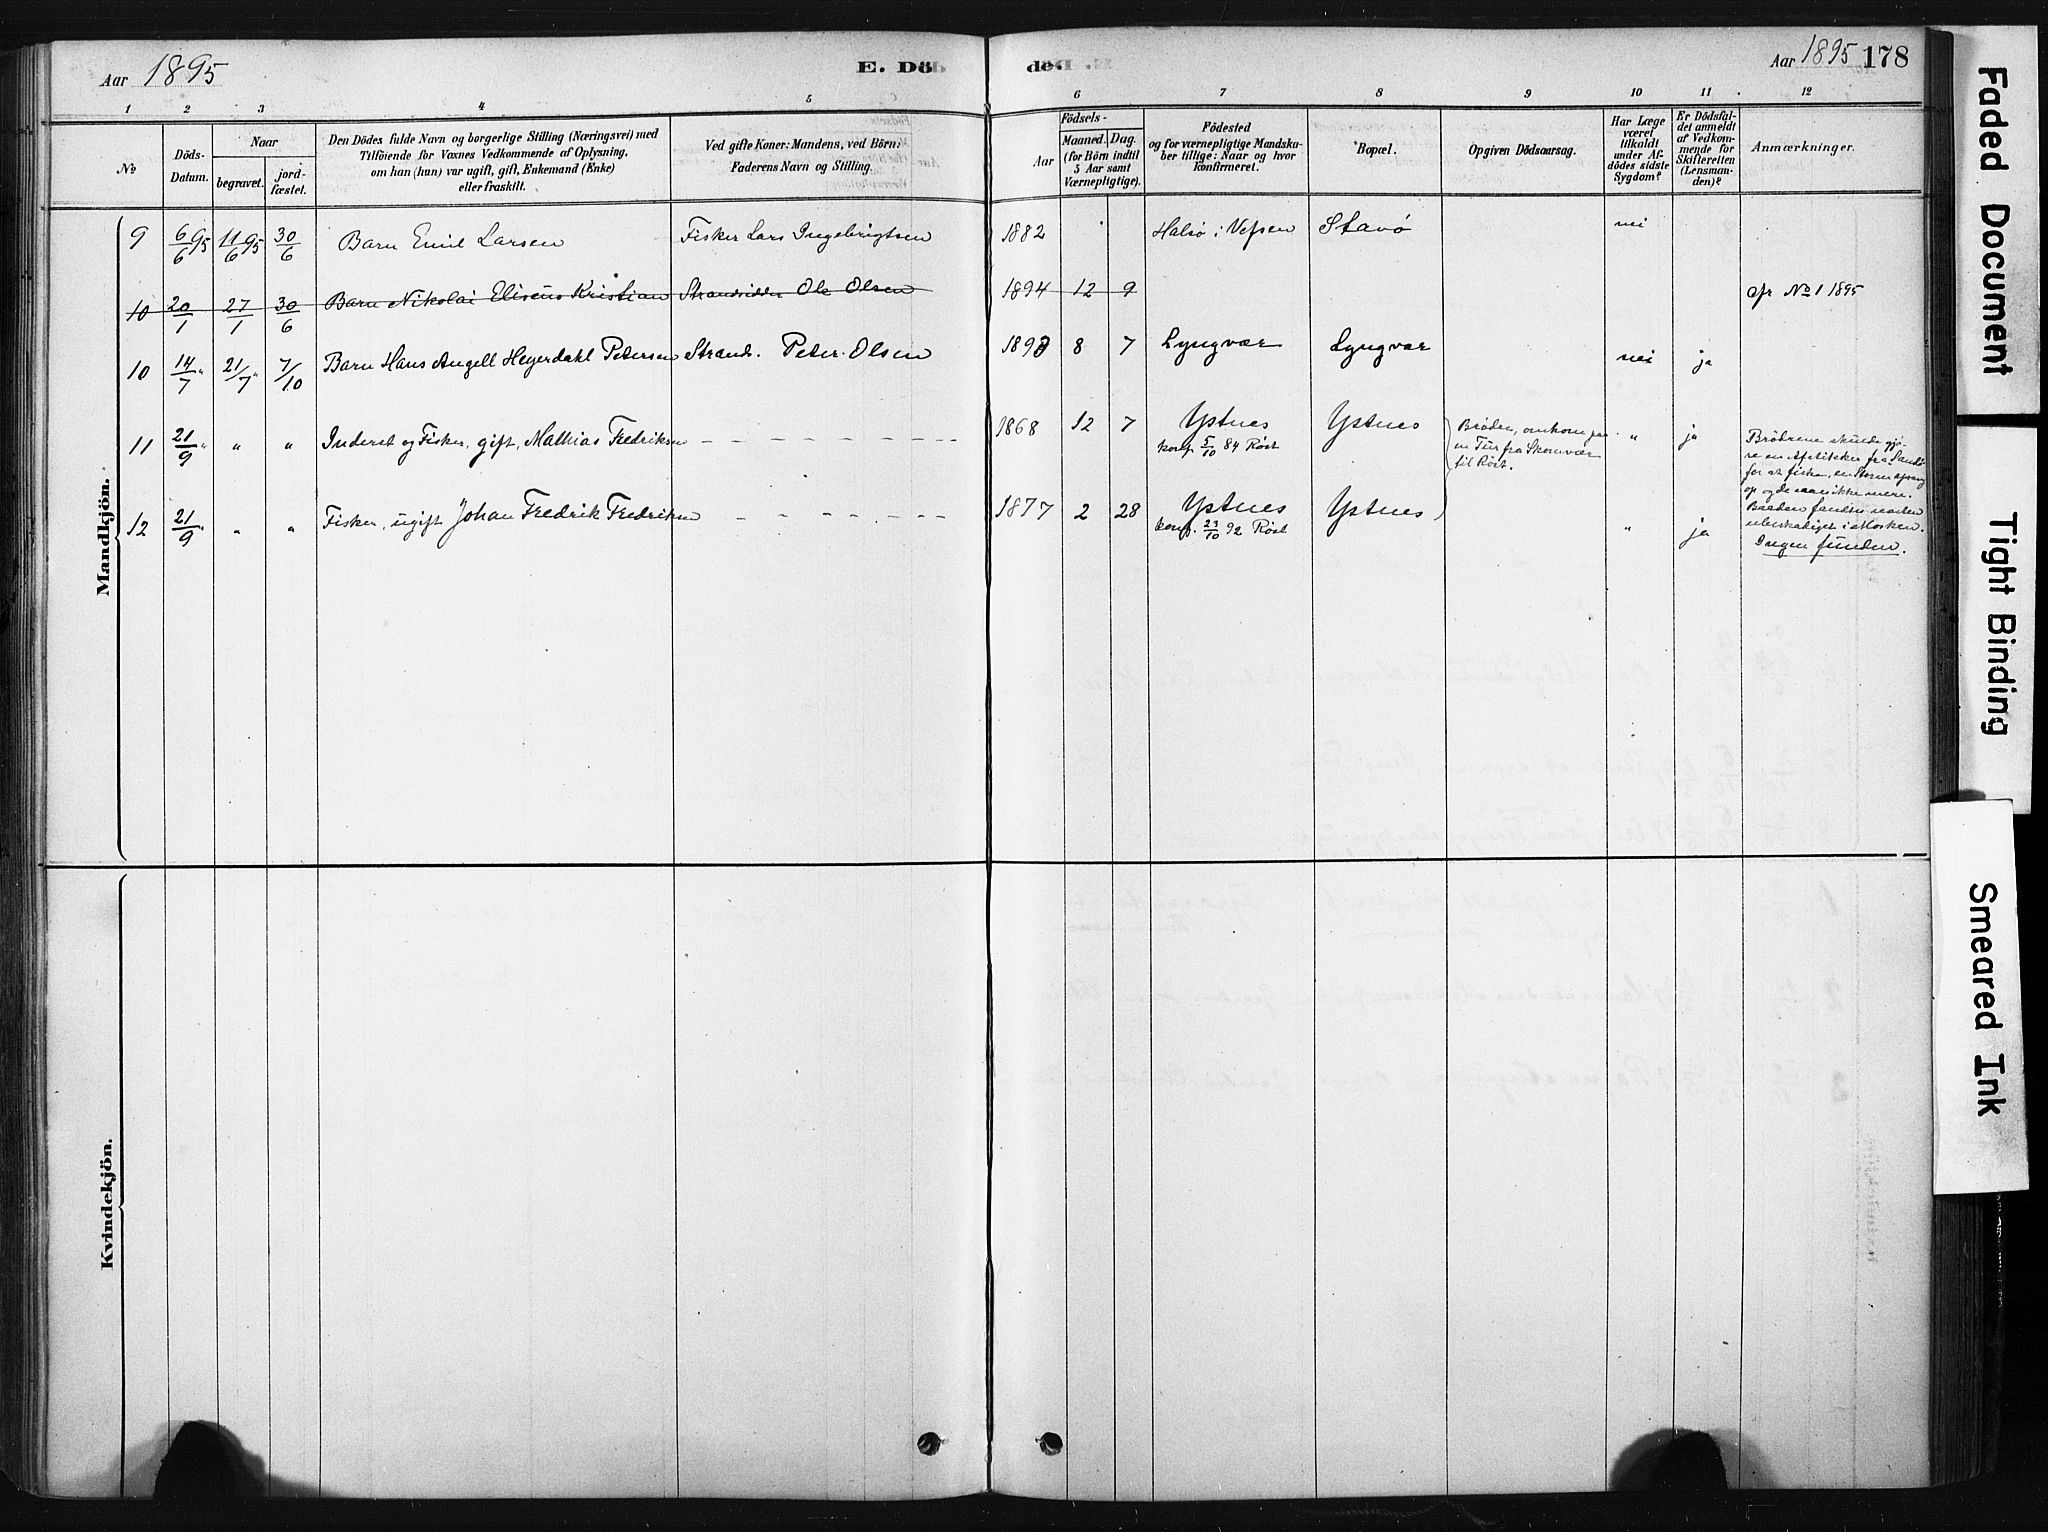 Aar 1895
E. Död
döde.
Aar 1895 178
1 2 3 4 5 6 7 8 9 10 11 12
No
Döds-
Datum.
Naar
begravet.
jord-
fæstet.
Den Dödes fulde Navn og borgerlige Stilling (Næringsvei) med
Tilföiende for Voxnes Vedkommende af Oplysning,
om han (hun) var ugift, gift, Enkemand (Enke)
eller fraskilt.
Ved gifte Koner: Mandens, ved Börn:
Faderens Navn og Stilling.
Födsels-
Aar
Maaned. Dag.
(for Börn indtil
5 Aar samt
Værnepligtige).
Födested
og for værnepligtige Mandska-
ber tillige: Naar og hvor
konfirmeret.
Bopæl.
Opgiven Dödsaarsag.
Har Læge
været
tilkaldt
under Af-
dödes sidste
Sygdom?
Er Dödsfal-
det anmeldt
af Vedkom-
mende for
Skifteretten
(Lensman-
den)?
Anmærkninger.
Mandkjön.
9 6/6 95 11/6 95 30/6 Barn Emil Larsen Fisker Lars Ingebrigtsen 1882 Halsø i Vefsen Stavø nei
10 20/1 27/1 30/6 Barn Nikolai Eliseus Kristian Strandsidder Ole Olsen 1894 12 9 cfr No 1 1895
10 14/7 " 21/7 " 7/10 Barn Hans Angell Heyerdahl Petersen Strands. Peter Olsen 1893 8 7 Lyngvær Lyngvær nei ja
11 21/9 " " " Inderst og Fisker, gift, Mathias Fredriksen 1868 12 7 Ystnes Ystnes " ja
konf. 5/10 84 Røst
Brødre, omkom paa
en Tur fra Skomvær
til Röst.
12 21/9 " " " Fisker, ugift Johan Fredrik Fredriksen 1877 2 28 Ystnes Ystnes " ja
konf. 23/10 92 Røst
Brödrene skulde gjö-
re en Afstikker fra
for at fiske, en Storm sprang
op og de saaes ikke mere.
Baaden fandtes
ubeskadiget i Mosken.
Ingen funden.
Kvindekjön.
Faded Document
Tight Binding
Smeared Ink